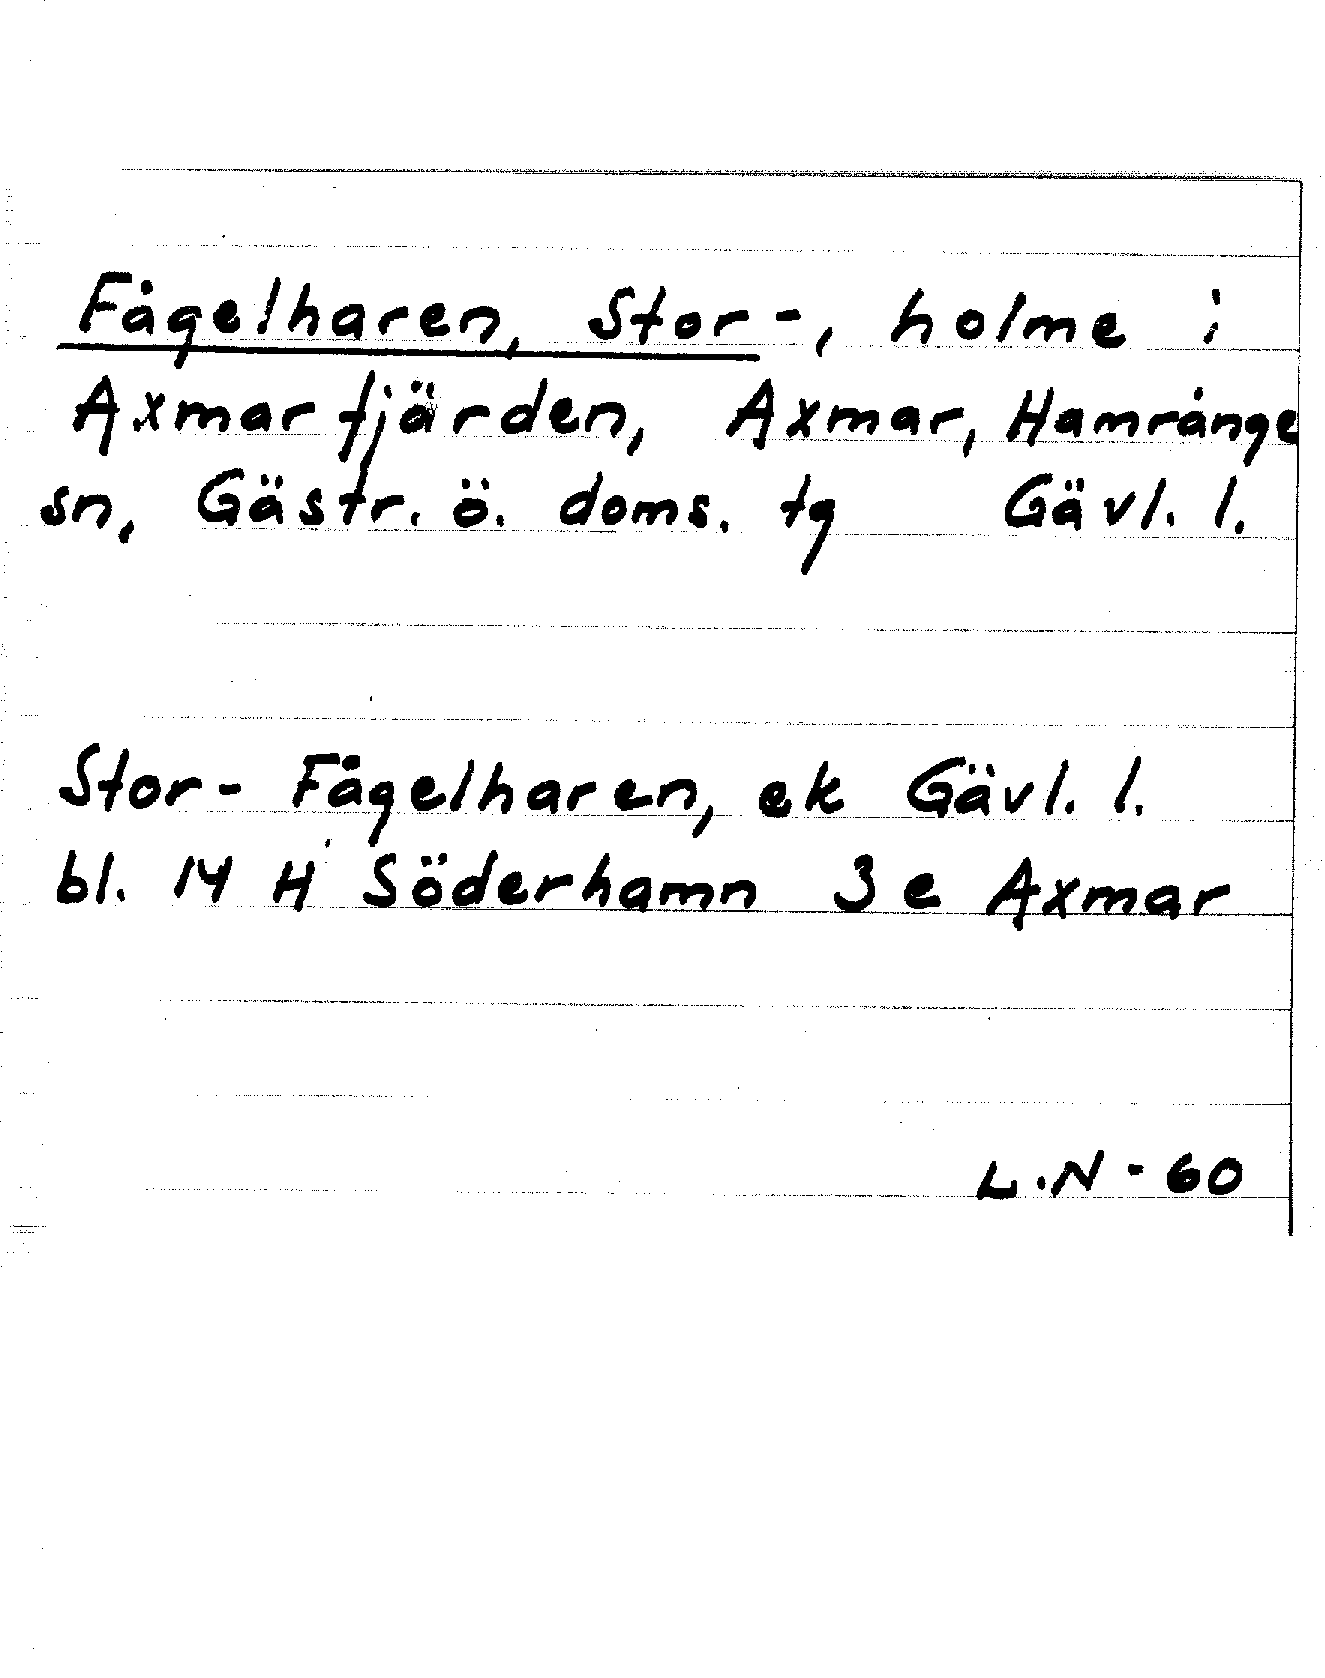 Fågelharen, Stor-, holme i
Axmarfjärden, Axmar, Hamrånge
sn, Gästr. ö. doms. tg Gävl. l.
Stor-Fågelharen, ek Gävl. l.
bl. 14 H Söderhamn 3 e Axmar
L.N - 60